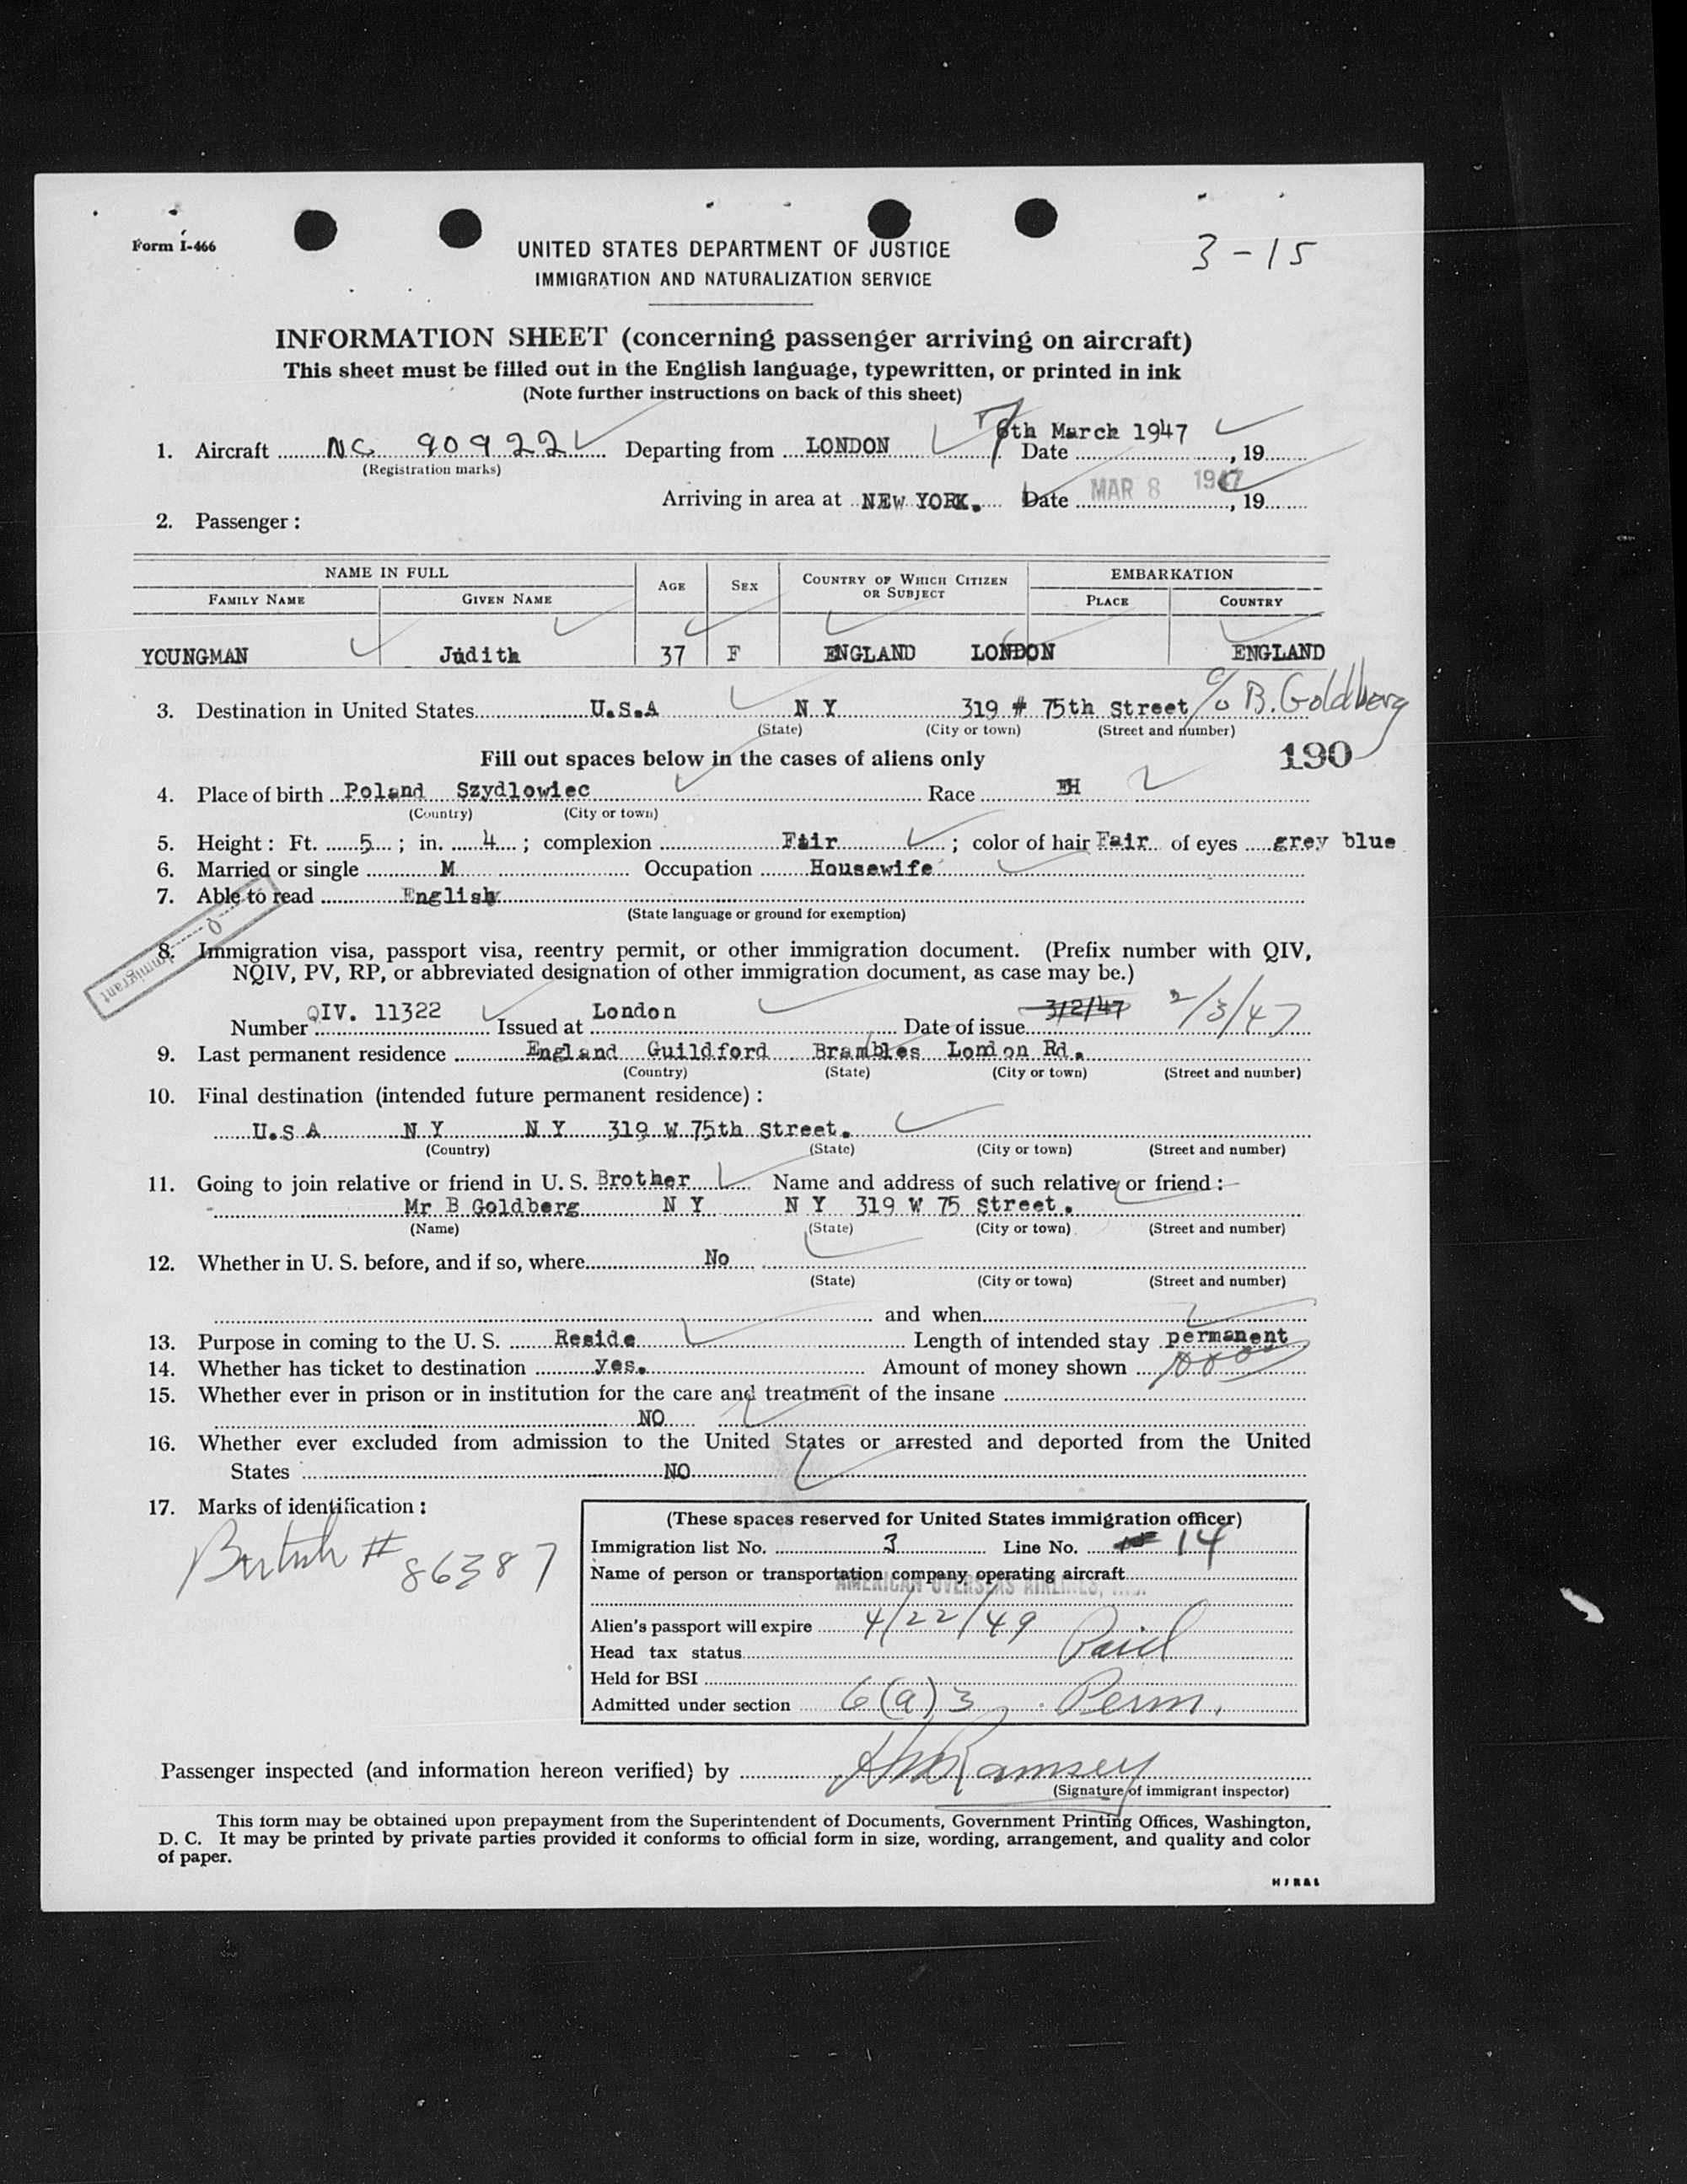 Form I-466
UNITED STATES DEPARTMENT OF JUSTICE
IMMIGRATION AND NATURALIZATION SERVICE
3-15
INFORMATION SHEET (concerning passenger arriving on aircraft)
This sheet must be filled out in the English language, typewritten, or printed in ink
(Note further instructions on back of this sheet)
1. Aircraft NC 90922 Departing from LONDON 7 6th March 1947 Date , 19
(Registration marks)
Arriving in area at NEW YORK. Date MAR 8 1947 , 19
2. Passenger:
NAME IN FULL AGE SEX COUNTRY OF WHICH CITIZEN OR SUBJECT EMBARKATION
FAMILY NAME GIVEN NAME PLACE COUNTRY
YOUNGMAN Judith 37 F ENGLAND LONDON ENGLAND
3. Destination in United States U.S.A N Y 319 # 75th Street c/o B. Goldberg
(State) (City or town) (Street and number)
Fill out spaces below in the cases of aliens only
190
4. Place of birth Poland Szydlowiec Race EH
(Country) (City or town)
5. Height: Ft. 5; in. 4; complexion Fair; color of hair Fair of eyes grey blue
6. Married or single M Occupation Housewife
7. Able to read English
(State language or ground for exemption)
Immigrant
8. Immigration visa, passport visa, reentry permit, or other immigration document. (Prefix number with QIV,
NQIV, PV, RP, or abbreviated designation of other immigration document, as case may be.)
Number QIV. 11322 Issued at London Date of issue 3/2/47 2/3/47
9. Last permanent residence England Guildford Brambles London Rd.
(Country) (State) (City or town) (Street and number)
10. Final destination (intended future permanent residence):
U.S A N Y N Y 319 W 75th Street.
(Country) (State) (City or town) (Street and number)
11. Going to join relative or friend in U. S. Brother Name and address of such relative or friend:
Mr B Goldberg N Y N Y 319 W 75 Street.
(Name) (State) (City or town) (Street and number)
12. Whether in U. S. before, and if so, where No
(State) (City or town) (Street and number)
and when
13. Purpose in coming to the U. S. Reside Length of intended stay permanent
14. Whether has ticket to destination yes. Amount of money shown
15. Whether ever in prison or in institution for the care and treatment of the insane
NO
16. Whether ever excluded from admission to the United States or arrested and deported from the United
States NO
17. Marks of identification:
British # 86387
(These spaces reserved for United States immigration officer)
Immigration list No. 3 Line No. 14
Name of person or transportation company operating aircraft
AMERICAN OVERSEAS AIRLINES, INC.
Alien's passport will expire 4/22/49
Head tax status Paid
Held for BSI
Admitted under section 6(a)3 Perm.
Passenger inspected (and information hereon verified) by Ramsey
(Signature of immigrant inspector)
This form may be obtained upon prepayment from the Superintendent of Documents, Government Printing Offices, Washington,
D. C. It may be printed by private parties provided it conforms to official form in size, wording, arrangement, and quality and color
of paper.